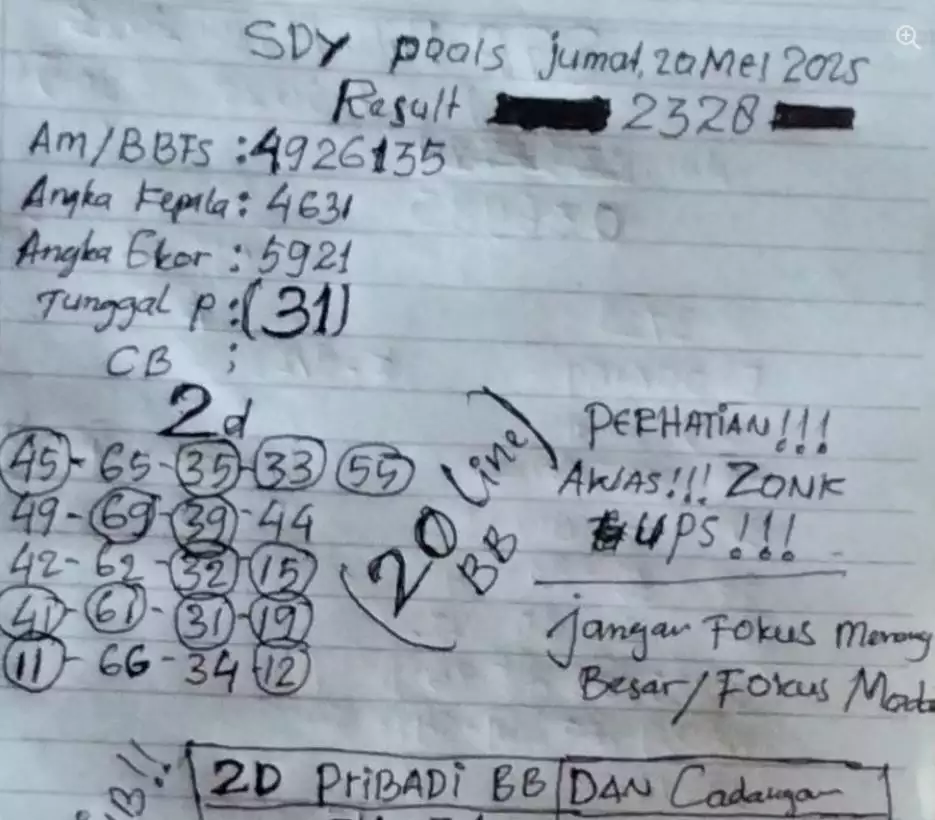 SDY pools jumat, 20 Mei 2025
Result 2328
Am/BBFS : 4926135
Angka Kepala : 4631
Angka Ekor : 5921
Tunggal P : (31)
CB :
2d
45 - 65 - 35 - 33 55
49 - 69 - 39 - 44
42 - 62 - 32 - 15
41 - 61 - 31 - 19
11 - 66 - 34 - 12
(20 Line)
BB
PERHATIAN!!!
AWAS!!! ZONK
UPS!!!
jangan Fokus Menang
Besar/Fokus
2D PRIBADI BB DAN Cadangan